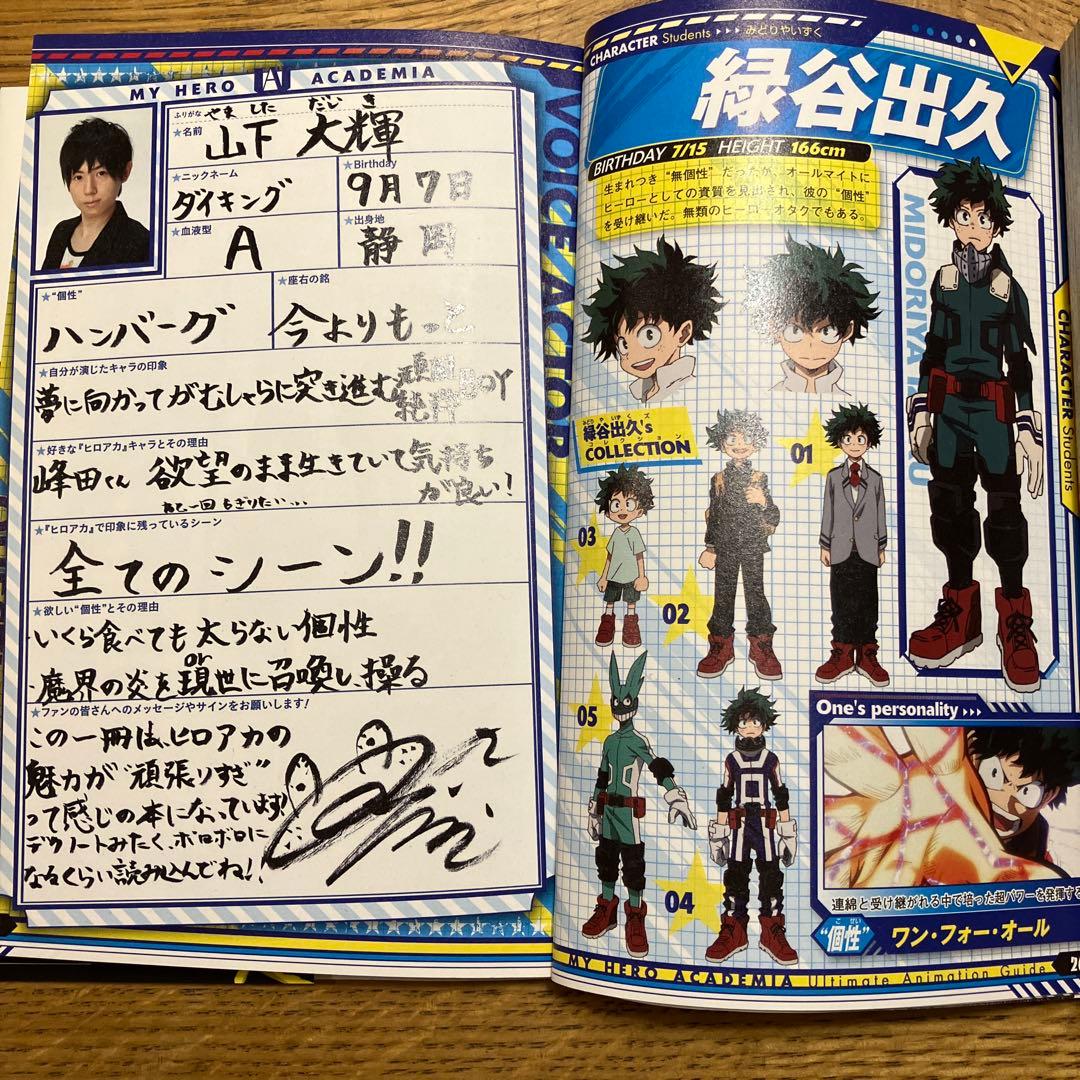 MY HERO A ACADEMIA
ふりがな やま した だい き
★名前
山下 大輝
★ニックネーム
ダイキング
★Birthday
9月7日
★血液型
A
★出身地
静岡
★“個性”
ハンバーグ
★座右の銘
今よりもっと
★自分が演じたキャラの印象
夢に向かってがむしゃらに突き進む
BOY
★好きな『ヒロアカ』キャラとその理由
峰田くん 欲望のまま生きていて気持ち
が良い!
一回もぎりたい…
★『ヒロアカ』で印象に残っているシーン
全てのシーン!!
★欲しい“個性”とその理由
いくら食べても太らない個性
or
魔界の炎を現世に召喚し、操る
★ファンの皆さんへのメッセージやサインをお願いします!
この一冊は、ヒロアカの
魅力が“頑張りすぎ”
って感じの本になっています!
デクノートみたく、ボロボロに
なるくらい読み込んでね!!
VOICE ACTOR
CHARACTER Students ▸▸▸ みどりやいずく
緑谷出久
BIRTHDAY 7/15 HEIGHT 166cm
生まれつき“無個性”だったが、オールマイトに
ヒーローとしての資質を見出され、彼の“個性”
を受け継いだ。無類のヒーローオタクでもある。
MIDORIYA IZUKU
CHARACTER Students
みどりやいずくズ
緑谷出久's
コレクション
COLLECTION
01
03
02
05
04
One's personality ▸▸▸
連綿と受け継がれる中で培った超パワーを発揮する
こせい
“個性” ワン・フォー・オール
MY HERO ACADEMIA Ultimate Animation Guide